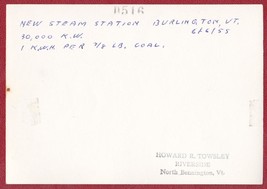 0516
NEW STEAM STATION BURLINGTON, VT.
30,000 K.W. 6/6/55
1 K.W.H PER 7/8 LB. COAL.
HOWARD E. TOWSLEY
RIVERSIDE
North Bennington, Vt.